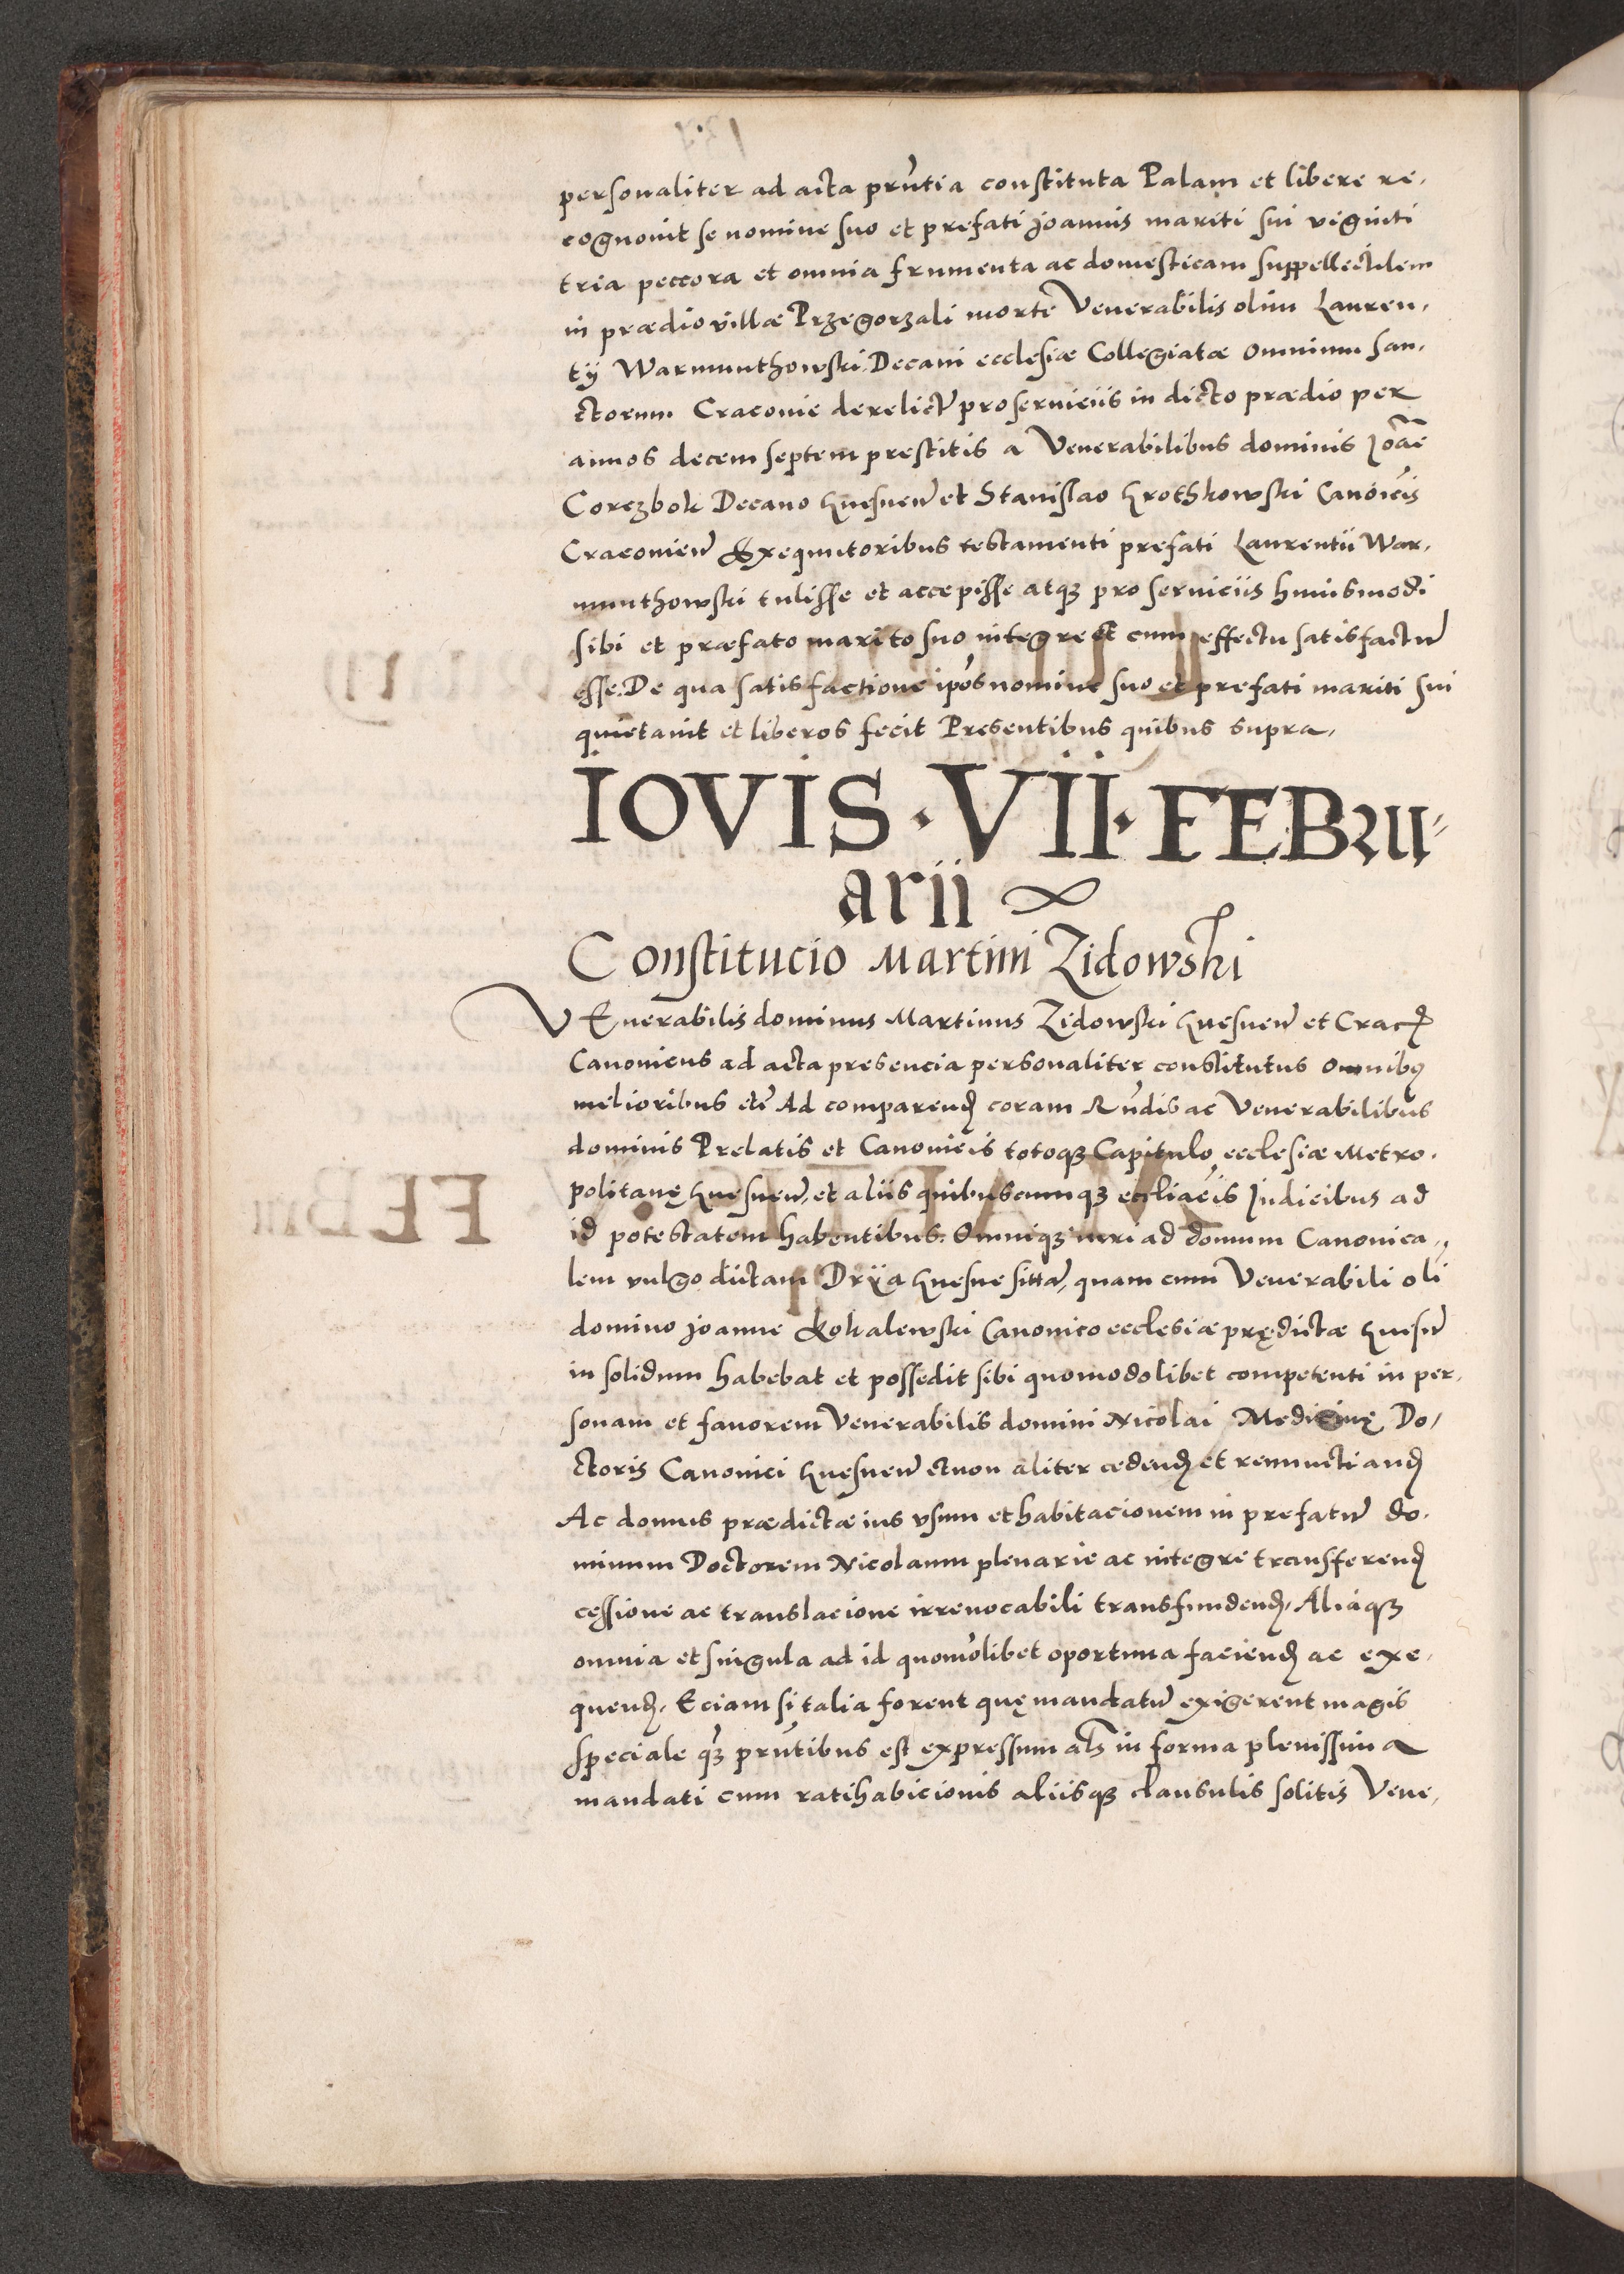 personaliter ad acta prñtia constituta Palam et libere re,
cognouit se nomine suo et prefati Joannis mariti sui viginti
tria peccora et omnia frumenta ac domesticam suppellectilem
in prædio villæ Przegorzali morte Venerabilis olim Lauren,
tÿ Warmunthowski Decani ecclesiæ Collegiatæ Omnium San,
ctorum Cracouie derelict̃ pro seruiciis in dicto prædio per
annos decem septem prestitis a Venerabilibus dominis Joãe
Corczbok Decano Gnesnen̄ et Stanislao Grothkowski Canoĩcis
Cracouien̄ Exequutoribus testamenti prefati Laurentii War,
munthowski tulisse et accepisse atqꝫ pro seruiciis huiusmodi
sibi et præfato marito suo integre et cum effectu satisfactū
esse. De qua satisfactione ip̃os nomine suo et prefati mariti sui
quietauit et liberos fecit Presentibus quibus supra,
IOVIS · VII · FEBru-
arii
Constitucio Martini Zidowski
VEnerabilis dominus Martinus Zidowski Gnesnen̄ et Crac̄
Canonicus ad acta presencia personaliter constitutus Omnibꝰ
melioribus etc̃ Ad comparend̄ coram Rñdis ac Venerabilibus
dominis Prelatis et Canonicis totoqꝫ Capitulo ecclesiæ Metro,
politanę Gnesnen̄, et aliis quibuscumqꝫ eccliac̃is Judicibus ad
id potestatem habentibus. Omniqꝫ iuri ad domum Canonica,,
lem vulgo dictam Drÿa Gnesne sittā, quam cum Venerabili oli
domino Joanne Kokalewski Canonico ecclesiæ prędictæ Gnesn̄
in solidum habebat et possedit sibi quomodolibet competenti in per,
sonam et fauorem Venerabilis domini Nicolai Medicinę Do,
ctoris Canonici Gnesnen̄ et non aliter cedend̄ et renuncti and̄
Ac domus prædictæ ius vsum et habitacionem in prefatū do,
minum Doctorem Nicolaum plenarie ac integre transferend̄
cessione ac translacione irreuocabili transfundend̄, Aliaqꝫ
omnia et singula ad id quomõlibet oportuna faciend̄ ac exe,
quend̄, Eciam si talia forent quę mandatū exigerent magis
speciale qꝫ̃ prñtibus est expressum als in forma plenissima
mandati cum ratihabicionis aliisqꝫ clausulis solitis Vene,